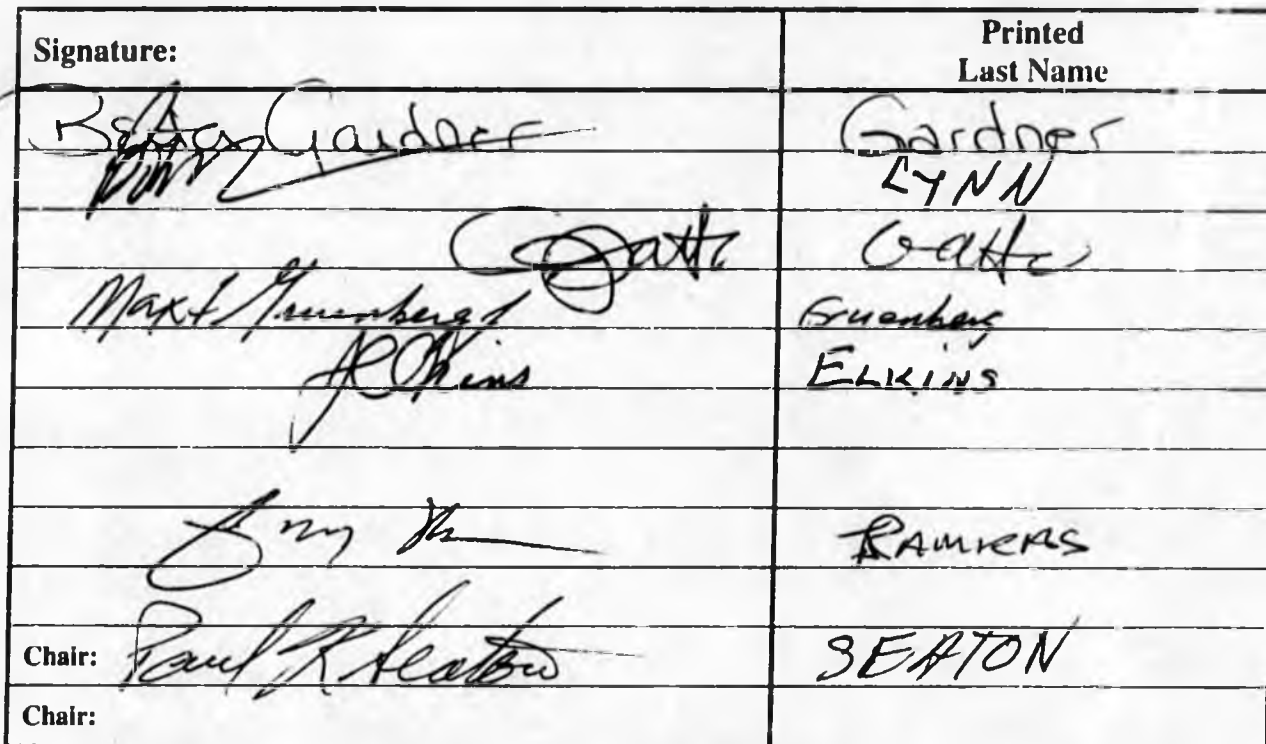 Signature: Printed
Last Name
Gardner Gardner
LYNN
Gatto
Max Gruenberg Gruenberg
Elkins ELKINS
RAMRAS
Chair: Paul K Seaton SEATON
Chair: